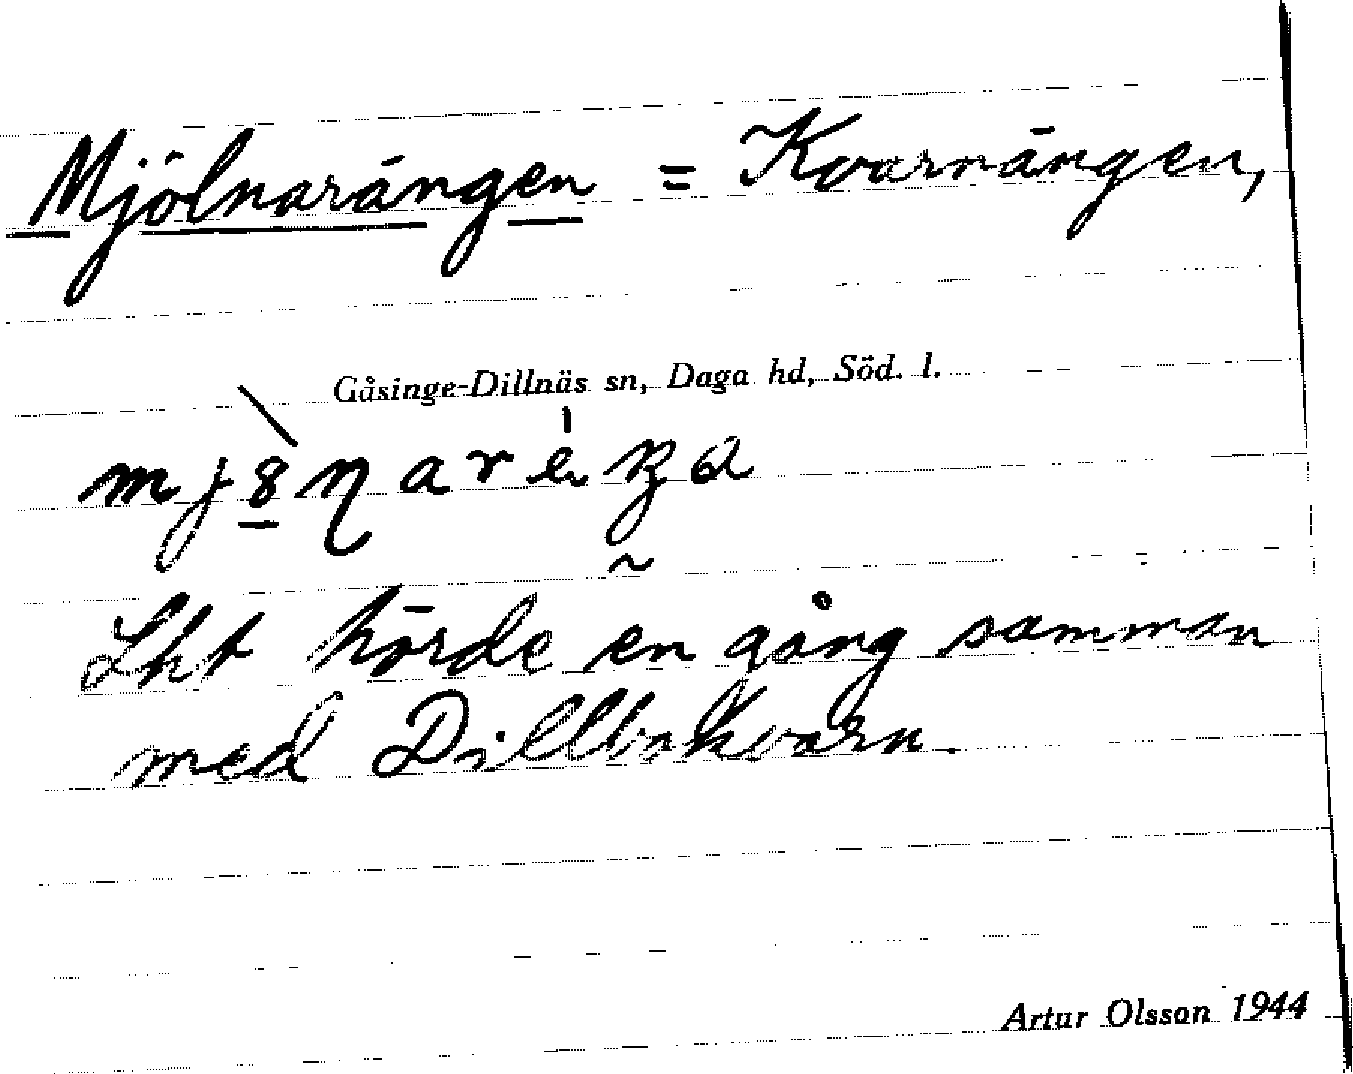 Mjölnarängen = Kvarnängen,
Gåsinge-Dillnäs sn, Daga hd, Söd. l.
Lht hörde en gång samman
med Dillbokvarn.
Artur Olsson 1944